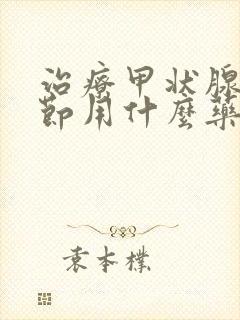 治療甲状腺
節用什麼藥
袁本樸